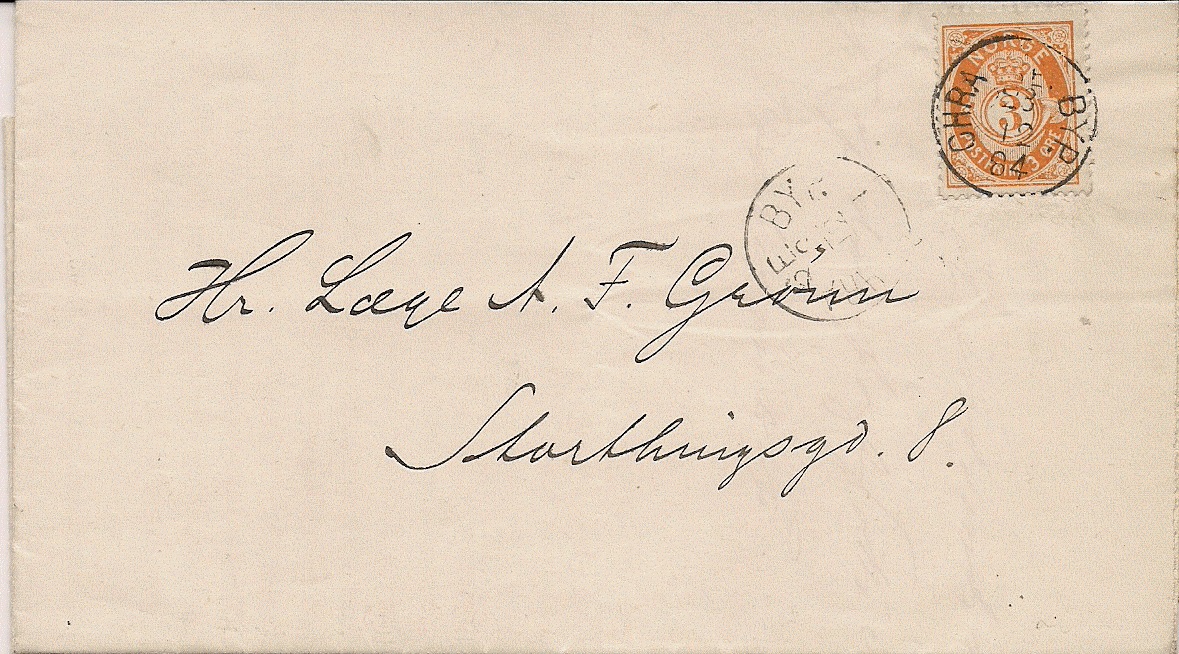 NORGE
3
POSTFRIM 3 ØRE
CHRA BYP.
12
84
BYG
Hr. Læge A. F. Grønn
Storthingsgd. 8.